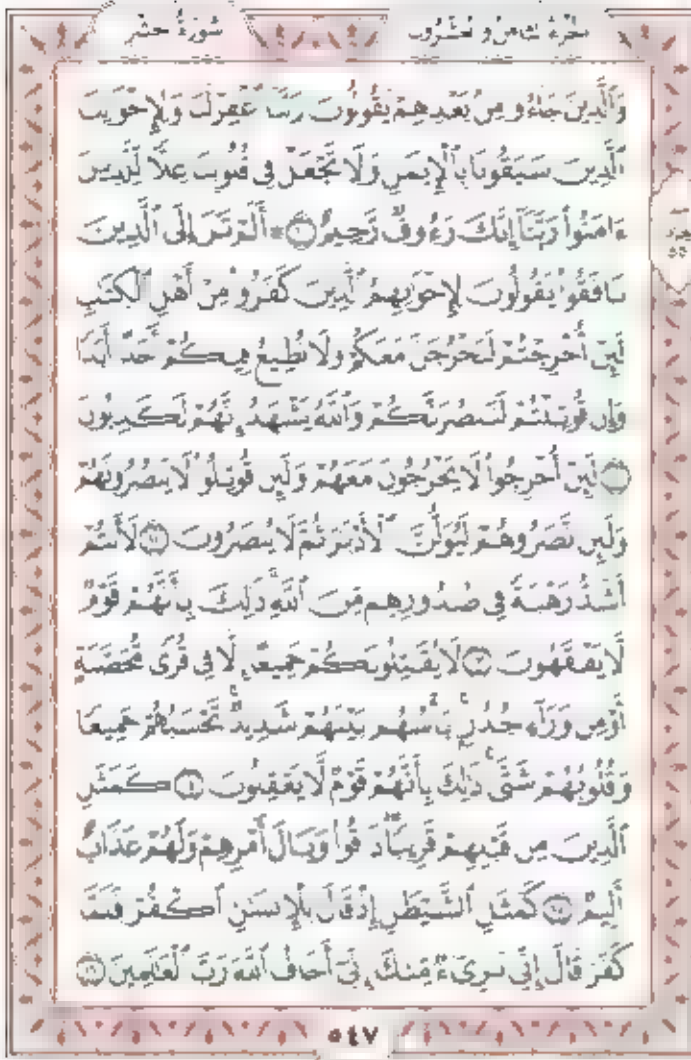 سُورَةُ الحَشْر الجُزْءُ الثَّامِنُ وَالعِشْرُون
وَٱلَّذِينَ جَآءُو مِنۢ بَعْدِهِمْ يَقُولُونَ رَبَّنَا ٱغْفِرْ لَنَا وَلِإِخْوَٰنِنَا
ٱلَّذِينَ سَبَقُونَا بِٱلْإِيمَٰنِ وَلَا تَجْعَلْ فِى قُلُوبِنَا غِلًّا لِّلَّذِينَ
ءَامَنُوا۟ رَبَّنَآ إِنَّكَ رَءُوفٌ رَّحِيمٌ ١٠ ۞ أَلَمْ تَرَ إِلَى ٱلَّذِينَ
نَافَقُوا۟ يَقُولُونَ لِإِخْوَٰنِهِمُ ٱلَّذِينَ كَفَرُوا۟ مِنْ أَهْلِ ٱلْكِتَٰبِ
لَئِنْ أُخْرِجْتُمْ لَنَخْرُجَنَّ مَعَكُمْ وَلَا نُطِيعُ فِيكُمْ أَحَدًا أَبَدًا
وَإِن قُوتِلْتُمْ لَنَنصُرَنَّكُمْ وَٱللَّهُ يَشْهَدُ إِنَّهُمْ لَكَٰذِبُونَ
١١ لَئِنْ أُخْرِجُوا۟ لَا يَخْرُجُونَ مَعَهُمْ وَلَئِن قُوتِلُوا۟ لَا يَنصُرُونَهُمْ
وَلَئِن نَّصَرُوهُمْ لَيُوَلُّنَّ ٱلْأَدْبَٰرَ ثُمَّ لَا يُنصَرُونَ ١٢ لَأَنتُمْ
أَشَدُّ رَهْبَةً فِى صُدُورِهِم مِّنَ ٱللَّهِ ذَٰلِكَ بِأَنَّهُمْ قَوْمٌ
لَّا يَفْقَهُونَ ١٣ لَا يُقَٰتِلُونَكُمْ جَمِيعًا إِلَّا فِى قُرًى مُّحَصَّنَةٍ
أَوْ مِن وَرَآءِ جُدُرٍۭ بَأْسُهُم بَيْنَهُمْ شَدِيدٌ تَحْسَبُهُمْ جَمِيعًا
وَقُلُوبُهُمْ شَتَّىٰ ذَٰلِكَ بِأَنَّهُمْ قَوْمٌ لَّا يَعْقِلُونَ ١٤ كَمَثَلِ
ٱلَّذِينَ مِن قَبْلِهِمْ قَرِيبًا ذَاقُوا۟ وَبَالَ أَمْرِهِمْ وَلَهُمْ عَذَابٌ
أَلِيمٌ ١٥ كَمَثَلِ ٱلشَّيْطَٰنِ إِذْ قَالَ لِلْإِنسَٰنِ ٱكْفُرْ فَلَمَّا
كَفَرَ قَالَ إِنِّى بَرِىٓءٌ مِّنكَ إِنِّىٓ أَخَافُ ٱللَّهَ رَبَّ ٱلْعَٰلَمِينَ ١٦
٥٤٧